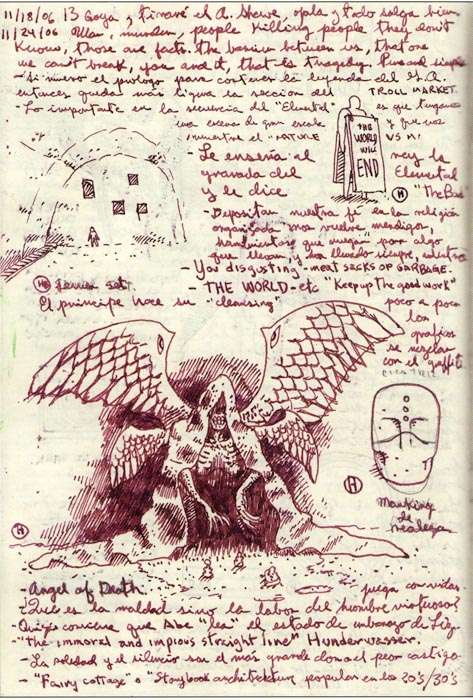 11/18/06 13 Goya, y tiraré el A. Show, ojala y todo salga bien
11/24/06 murder, people killing people they don't
know, those are facts. The barrier between us, that one
we can't break, you and it, that is tragedy. Pure and simple
- Si muevo el prologo para contener la leyenda del A.
entonces queda más ligera la sección del TROLL MARKET.
- Lo importante en la secuencia del "Elemental" es que tengamos
una escena de gran escala y que nos
muestre el NATURE VS M.
THE WORLD WILL END
Le enseña al rey la
granada del Elemental
y le dice "The Ba
- Depositan nuestra fé en la religión
organizada nos vuelve mendigos,
hambrientos que ruegan por algo
que llevan y han llevado siempre, adentro
- You disgusting meat SACKS OF GARBAGE.
- THE WORLD - etc "Keep up the good work"
El principe hace su "cleansing"
poco a poco
los
grafios
se mezclan
con el graffiti
CICATRIZ
H
H
H
marking
de
realeza
- Angel of Death. juega con vidas
¿Qué es la maldad sino la labor del hombre virtuoso?
- Quizás conviene que Abe "lea" el estado de embarazo de Liz.
- "The immoral and impious streight line" Hunderwasser.
- La soledad y el silencio son el más grande don o el peor castigo
- "Fairy cottage" o "Storybook architektur" popular en los 20's/30's